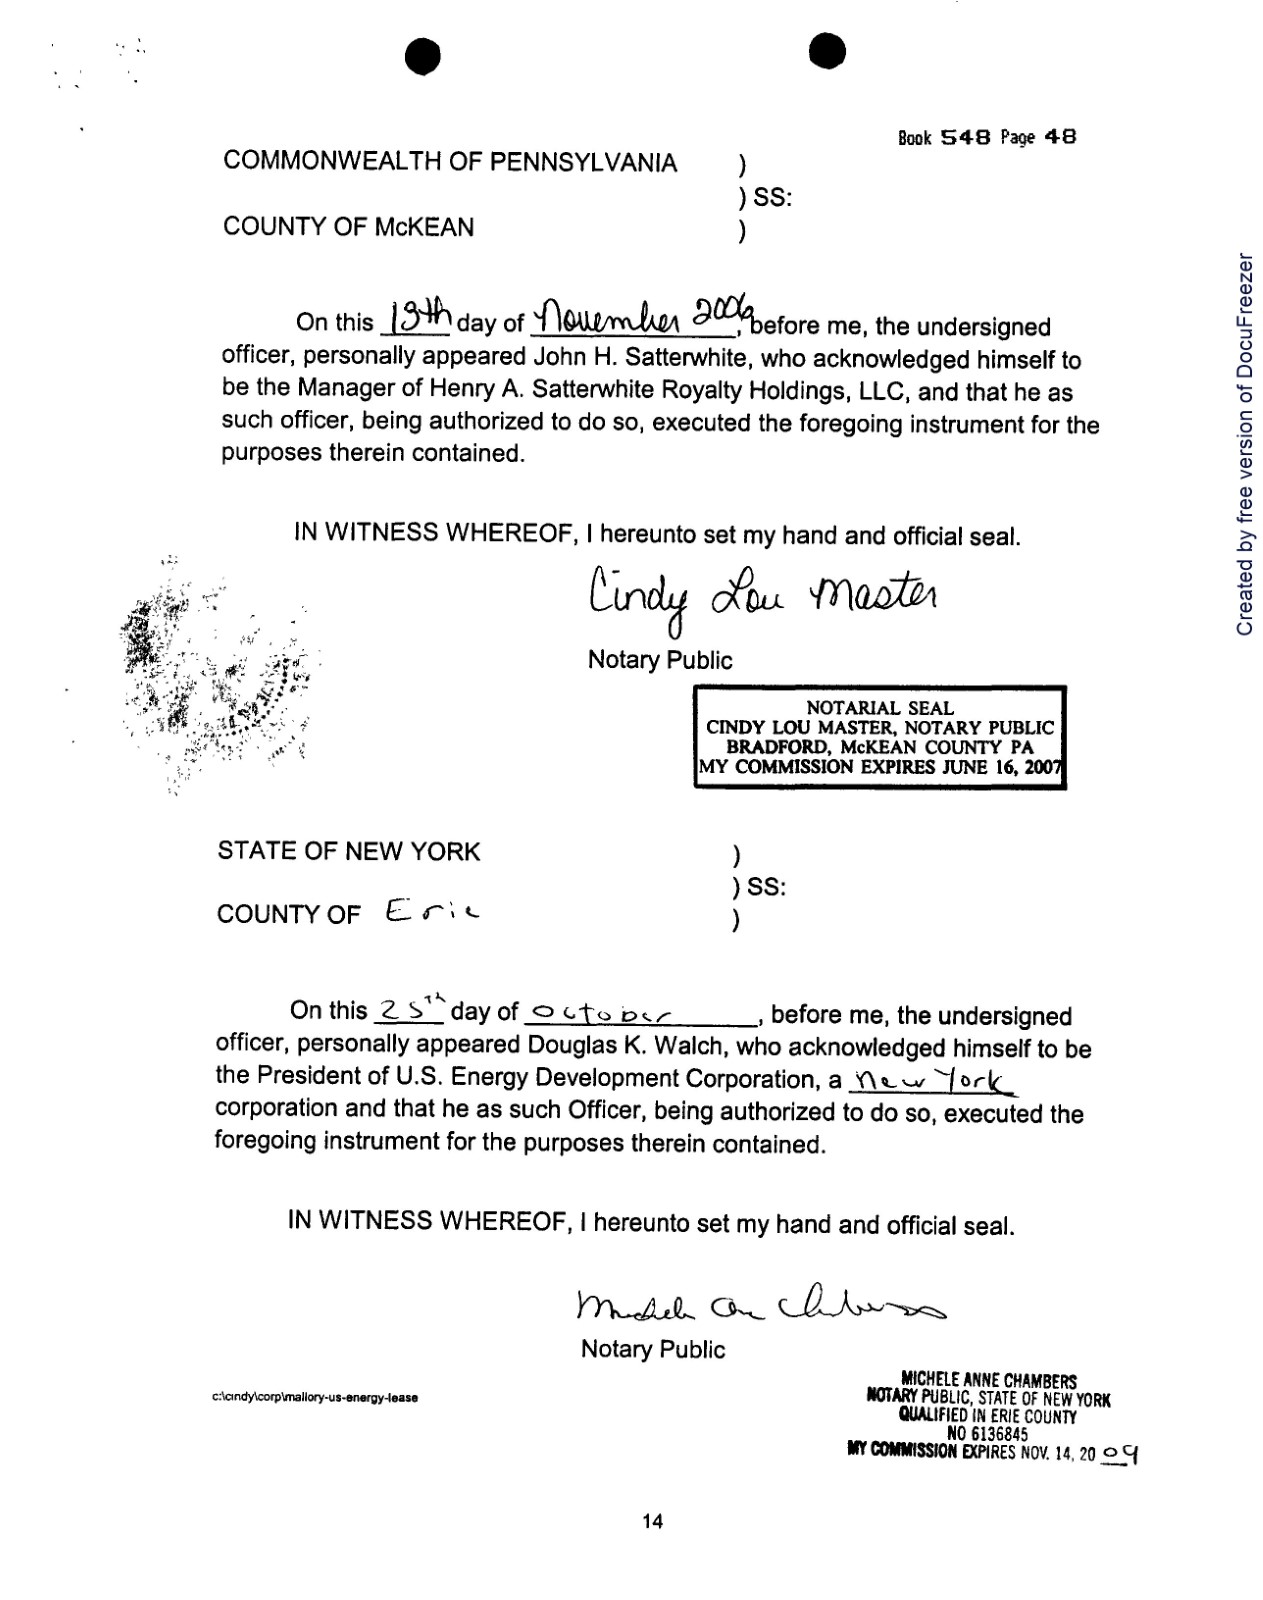 Book 548 Page 48
COMMONWEALTH OF PENNSYLVANIA )
) SS:
COUNTY OF McKEAN )
On this 13th day of November 2006, before me, the undersigned
officer, personally appeared John H. Satterwhite, who acknowledged himself to
be the Manager of Henry A. Satterwhite Royalty Holdings, LLC, and that he as
such officer, being authorized to do so, executed the foregoing instrument for the
purposes therein contained.
IN WITNESS WHEREOF, I hereunto set my hand and official seal.
Cindy Lou Master
Notary Public
NOTARIAL SEAL
CINDY LOU MASTER, NOTARY PUBLIC
BRADFORD, McKEAN COUNTY PA
MY COMMISSION EXPIRES JUNE 16, 2007
STATE OF NEW YORK )
) SS:
COUNTY OF Erie )
On this 25th day of October, before me, the undersigned
officer, personally appeared Douglas K. Walch, who acknowledged himself to be
the President of U.S. Energy Development Corporation, a New York
corporation and that he as such Officer, being authorized to do so, executed the
foregoing instrument for the purposes therein contained.
IN WITNESS WHEREOF, I hereunto set my hand and official seal.
Michele Ann Chambers
Notary Public
c:\cindy\corp\mallory-us-energy-lease
MICHELE ANNE CHAMBERS
NOTARY PUBLIC, STATE OF NEW YORK
QUALIFIED IN ERIE COUNTY
NO 6136845
MY COMMISSION EXPIRES NOV. 14, 2009
14
Created by free version of DocuFreezer